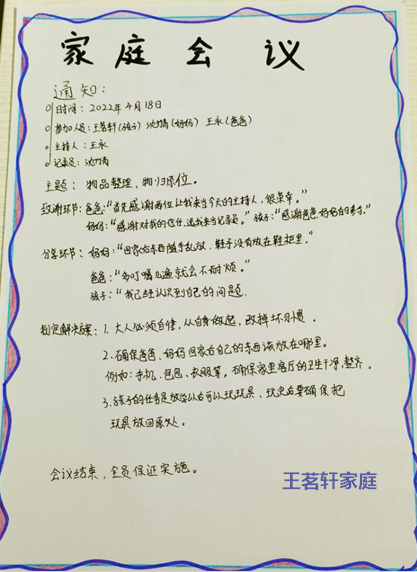 家庭会议
通知：
时间：2022年4月18日
参加人员：王茗轩(孩子) 沈倩(妈妈) 王永(爸爸)
主持人：王永
记录员：沈倩
主题：物品整理，物归原位。
致谢环节：爸爸：“首先感谢两位让我来当今天的主持人，很荣幸。”
妈妈：“感谢对我的信任，选我来当记录员。” 孩子：“感谢爸爸妈妈的
分享环节：妈妈：“回家后东西随手乱放，鞋子没有放在鞋柜里。”
爸爸：“多叮嘱几遍就会不耐烦。”
孩子：“我已经认识到自己的问题.
制定解决方案：1.大人必须自律，从自身做起，改掉坏习惯。
2.确保爸爸、妈妈回家后自己的东西该放在哪里。
例如：手机、包包、衣服等，确保家里客厅的卫生干净、整齐。
3.孩子的任务是放学以后可以玩玩具，玩完后要确保把
玩具放回原处。
会议结束，全员保证实施。
王茗轩家庭